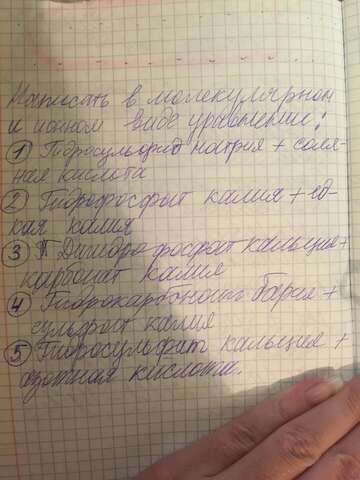 Написать в молекулярном
и ионном виде уравнение:
1 Гидросульфид натрия + соля-
ная кислота
2 Гидрофосфат калия + ед-
кая калия
3 Дигидрофосфат кальция +
карбонат калия
4 Гидрокарбонат бария +
сульфат калия
5 Гидросульфит кальция +
азотная кислота.